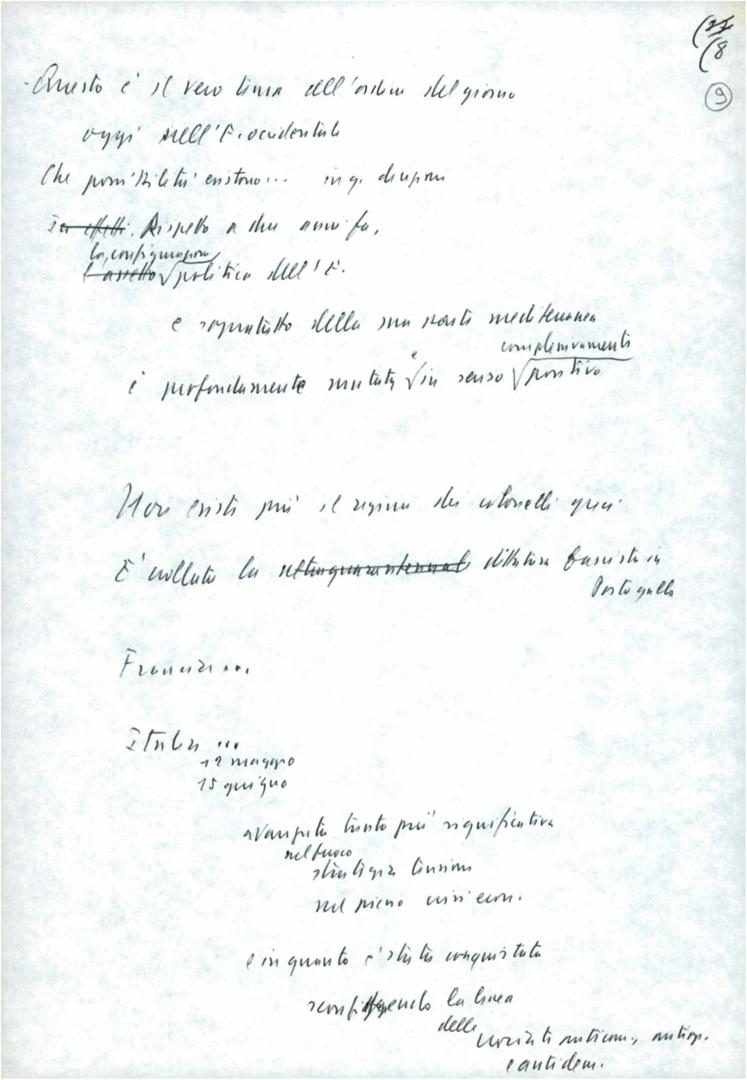 9
- Questo è il vero tema all'ordine del giorno
oggi nell'E. occidentale
Che possibilità esistono... in q. direzione
In effetti. Rispetto a due anni fa,
la configurazione
l'assetto politica dell'E.
e soprattutto della sua parte mediterranea
complessivamente
è profondamente mutata e in senso positivo
Non esiste più il regime dei colonelli greci
È crollata la dittatura fascista in
Portogallo
Francia....
Italia ...
12 maggio
15 giugno
avanzata tanto più significativa
nel fuoco
strategia tensione
nel pieno crisi econ.
e in quanto è stata conquistata
sconfiggendo la linea
della
crociata anticom., antiop.
e antidem.